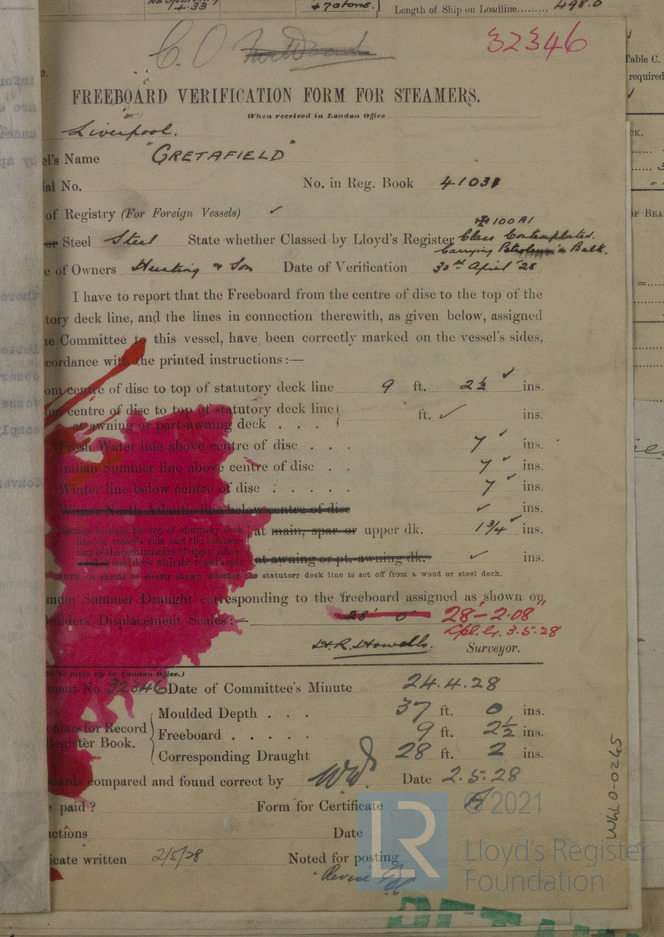 + 70 tons.
Length of Ship on Loadline......... 498.0
C.O.
32346
2.
FREEBOARD VERIFICATION FORM FOR STEAMERS.
When received in London Office
Liverpool.
el's Name "GRETAFIELD"
ial No. No. in Reg. Book 41031
of Registry (For Foreign Vessels) ✓
✠100A1
or Steel Steel State whether Classed by Lloyd's Register Class Contemplated.
Carrying Petroleum in Bulk.
e of Owners Hunting & Son Date of Verification 30th April '28
I have to report that the Freeboard from the centre of disc to the top of the
tory deck line, and the lines in connection therewith, as given below, assigned
e Committee to this vessel, have been correctly marked on the vessel's sides,
cordance with the printed instructions:—
om centre of disc to top of statutory deck line 9 ft. 2½ ✓ ins.
om centre of disc to top of statutory deck line
at awning or part-awning deck . . . . ft. ✓ ins.
Fresh Water line above centre of disc . . . 7 ✓ ins.
Indian Summer line above centre of disc . . 7 ✓ ins.
Winter line below centre of disc . . . . . 7 ✓ ins.
Winter North Atlantic line below centre of disc ✓ ins.
Distance between the top of statutory deck
line on vessel's side and the intersec-
tion of the continuation of upper side
steel deck with the vessel's side
at main, spar or upper dk. 1¾ ✓ ins.
at awning or pt. awning dk. ✓ ins.
NOTE. It should be clearly shown whether statutory deck line is set off from a wood or steel deck.
mum Summer Draught corresponding to the freeboard assigned as shown on
uilders' Displacement Scales:— 28' 0" 28'-2.08"
Lpl. Lr. 3.5.28
H.R. Howells. Surveyor.
in London Office.)
ment No 32346 Date of Committee's Minute 24.4.28
Moulded Depth . . . 37 ft. 0 ins.
for Record
egister Book.
Freeboard . . . . . 9 ft. 2½ ins.
Corresponding Draught 28 ft. 2 ins.
compared and found correct by Date 2.5.28
e paid? Form for Certificate A
uctions Date
icate written 2/5/28 Noted for posting
W440-0245
© 2021
LR
Lloyd's Register
Foundation
able C.
required